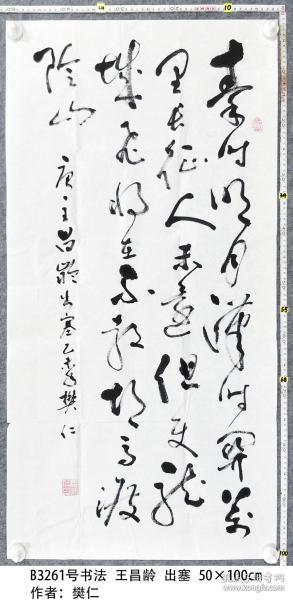 秦时明月漢时関萬
里长征人未還但使龍
城飞将在不教胡马渡
陰山
唐王昌齡出塞乙 樊仁
B3261号书法 王昌龄 出塞 50×100cm
作者：樊仁